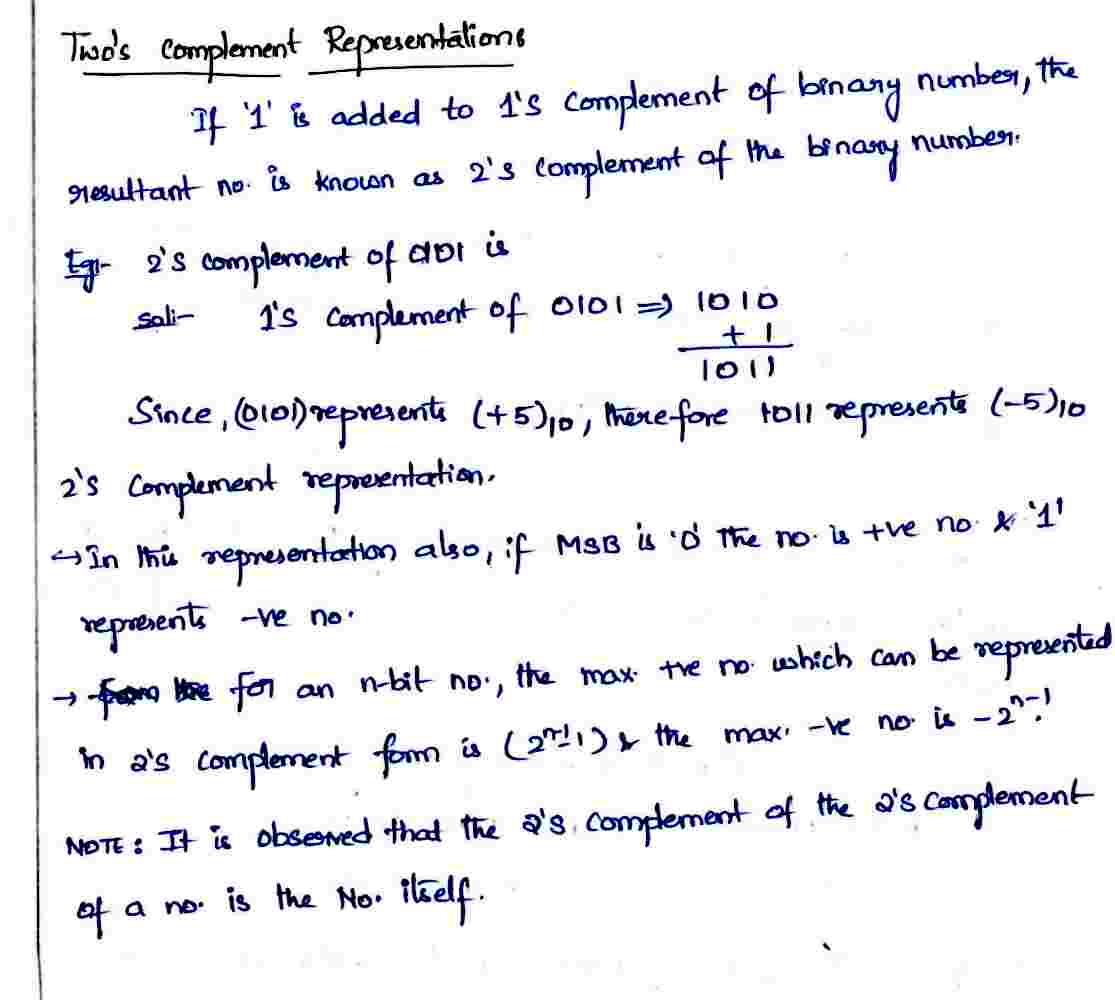 Two's Complement Representations
If '1' is added to 1's complement of binary number, the
resultant no. is known as 2's complement of the binary number.
Eg:- 2's complement of 0101 is
sol:- 1's complement of 0101 ⇒ 1010
+ 1
1011
Since, (0101) represents (+5)₁₀, therefore 1011 represents (-5)₁₀
2's complement representation.
↪ In this representation also, if MSB is '0' the no. is +ve no. & '1'
represents -ve no.
→ for an n-bit no., the max. +ve no. which can be represented
in 2's complement form is (2ⁿ⁻¹-1) & the max. -ve no. is -2ⁿ⁻¹.
NOTE: It is observed that the 2's complement of the 2's complement
of a no. is the No. itself.